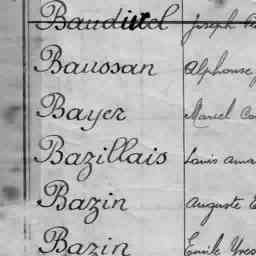 Baudistel Joseph
Baussan Alphonse
Bayer Marcel
Bazillais Louis
Bazin Auguste
Bazin Emile Yves